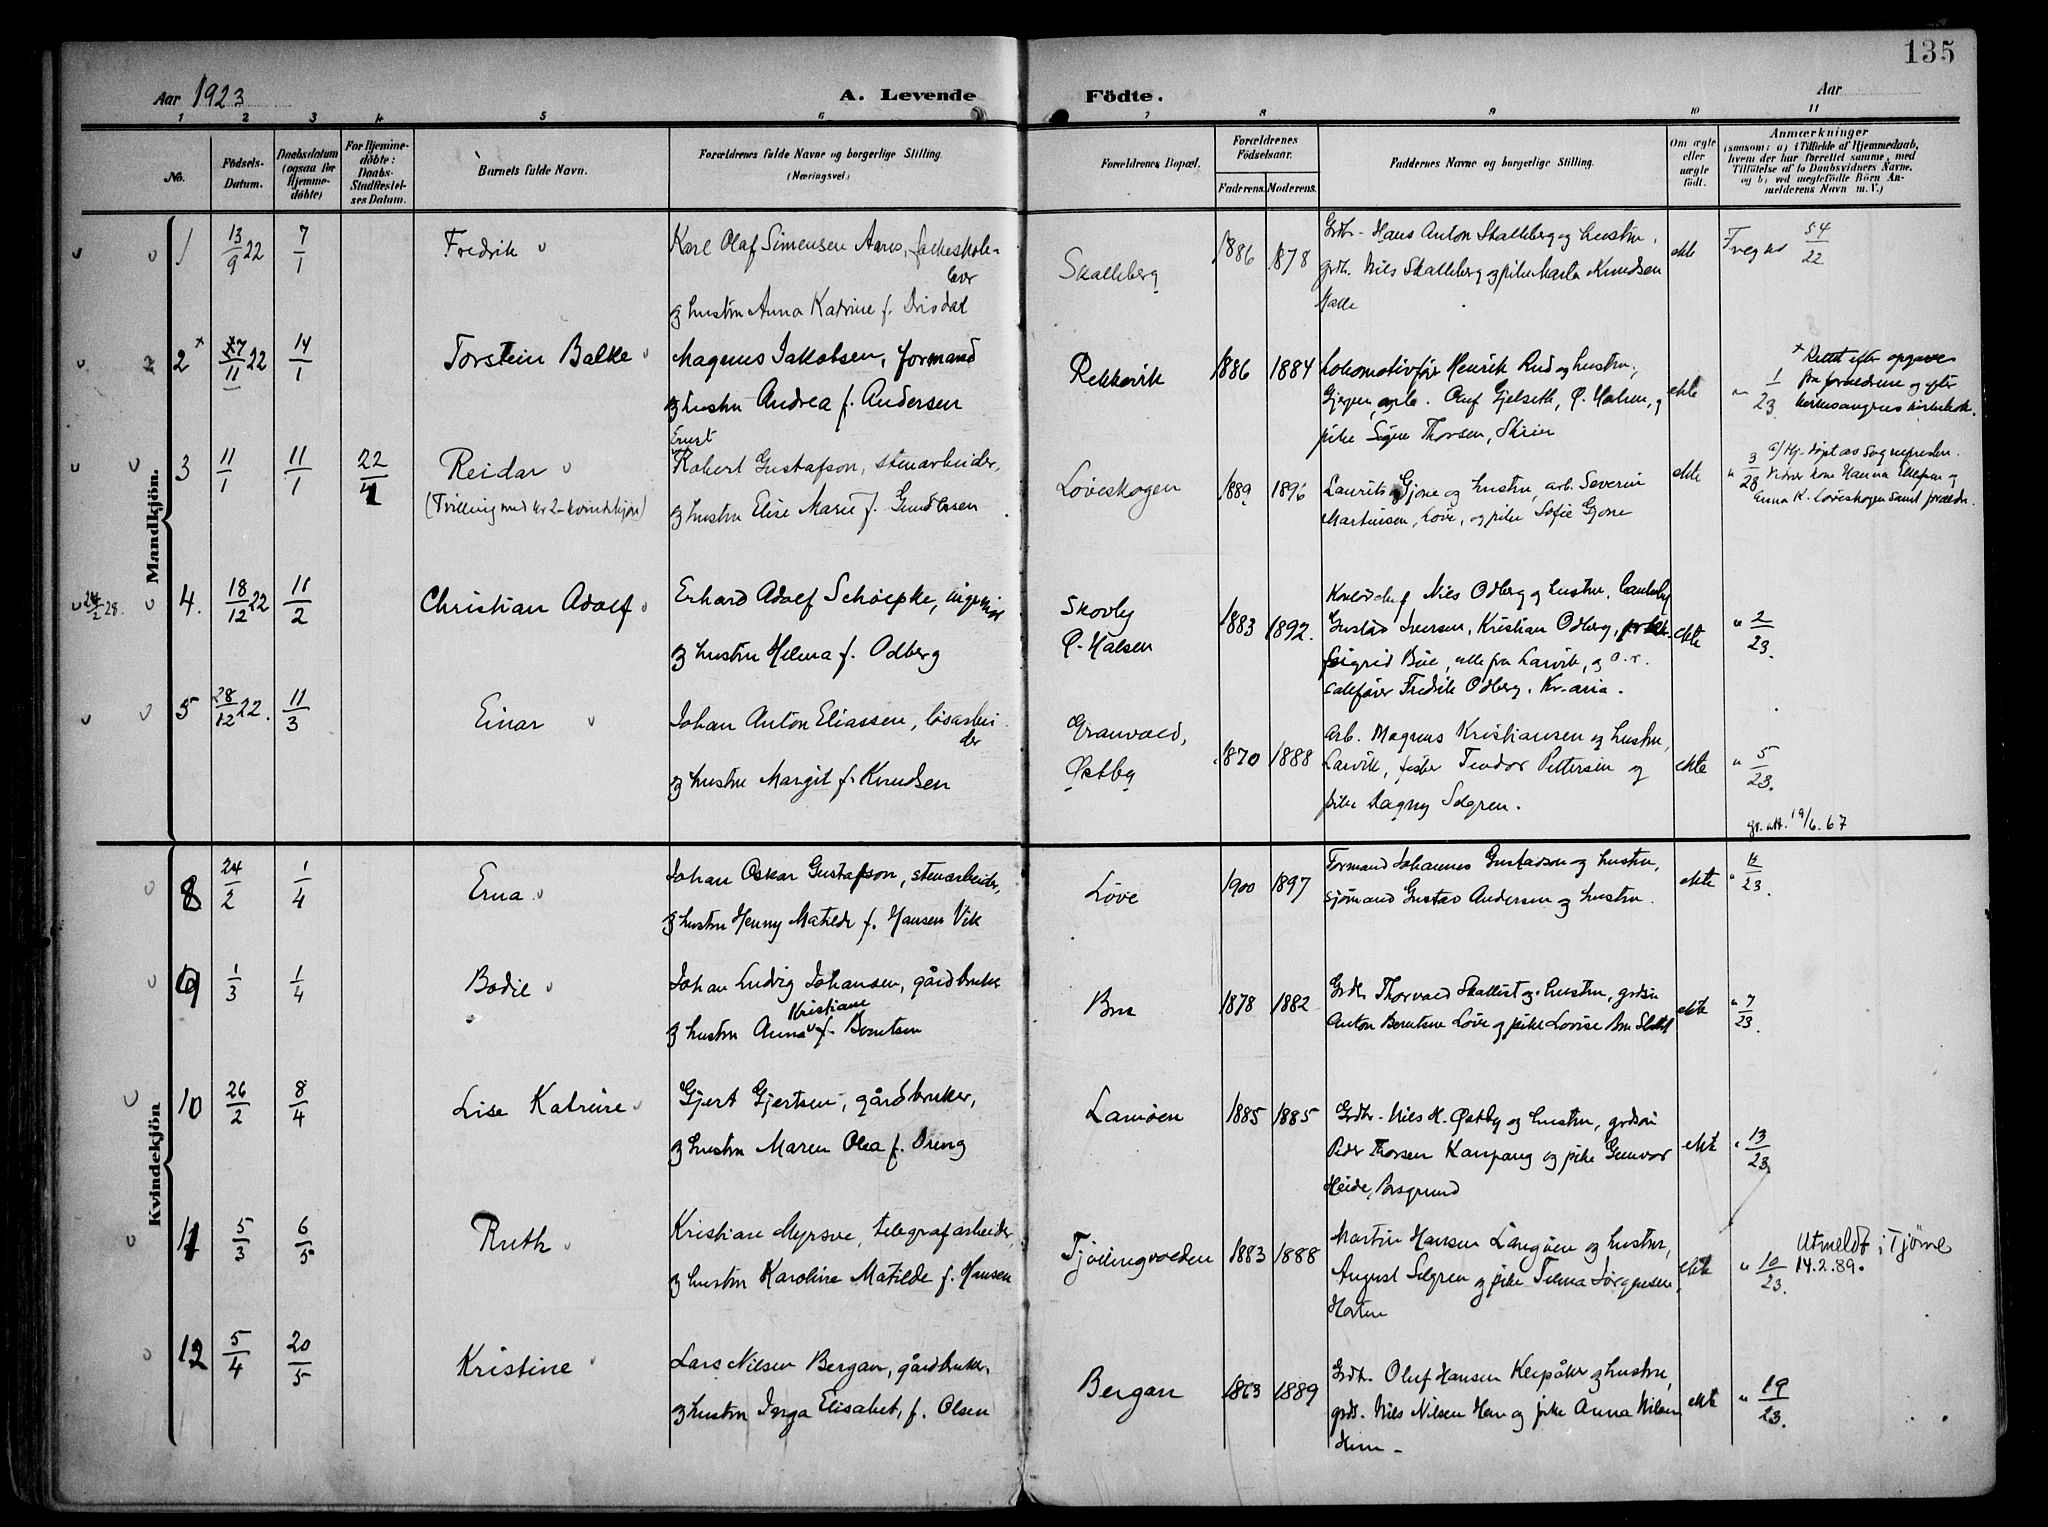 135
Aar 1923
A. Levende Födte.
Aar
1 2 3 4 5 6 7 8 9 10 11
No.
Födsels-Datum.
Daabsdatum (ogsaa for Hjemmedöbte)
For Hjemmedöbte: Daabs-Stadfæstelses Datum.
Barnets fulde Navn.
Forældrenes fulde Navne og borgerlige Stilling. (Næringsvei)
Forældrenes Bopæl.
Forældrenes Födselsaar.
Faderens. Moderens.
Faddernes Navne og borgerlige Stilling.
Om ægte eller uægte födt.
Anmærkninger
(saasom: a) i Tilfælde af Hjemmedaab, hvem der har forrettet samme, med Tilföielse af to Daabsvidners Navne, og b) ved uægtefödte Börn Anmelderens Navn m. V.)
Mandkjön.
1 13/9 22 7/1 Fredrik
Karl Olaf Simensen Aares, folkeskole-
lærer
og hustru Anna Katrine f. Drisdal
Skalleberg 1886 1878
Grdbr. Hans Anton Skalleberg og hustru,
grdb. Nils Skalleberg og pike Marta Knudsen
ekte 54/22
2 x 27/11 22 14/1 Torstein Balke
Magnus Jakobsen, formand
og hustru Andrea f. Andersen
Rekkevik 1886 1884
Lokomotivfør Henrik Rud og hustru,
Oluf Gjelseth, Ø. Halsen, og
pike Signe Thorsen, Skien
ekte " 1/23
x Rettet efter opgave
fra forældrene og efter
3 11/1 11/1 22/4 Reidar
(Tvilling med nr 2 - kvindekjøn)
Ernst
Robert Gustafson, stenarbeider,
og hustru Elise Marie f. Gundersen
Løveskogen 1889 1896
Laurits Gjone og hustru, arb. Severin
Martinsen, Løve, og pike Sofie Gjone
ekte " 3/23
a/ Hj. døpt av sognepresten.
Anna K. Løveskogen samt forældr.
24/2 28. 4. 18/12 22 11/2 Christian Adolf
Erhard Adolf Schöepke, ingeniør
og hustru Helena f. Odberg
Skovly
Ø. Halsen 1883 1892.
Nils Odberg og hustru,
Gustav Iversen, Kristian Odberg,
Sigrid Bue, alle fra Larvik, og
Fredrik Odberg, Kr.ania.
ekte " 2/23.
5 28/12 22. 11/3 Einar
Johan Anton Eliassen, løsarbei-
der
og hustru Margit f. Knudsen
Granvold,
Østby 1870 1888
Arb. Magnus Kristiansen og hustru,
Larvik, fisker Teodor Pettersen og
pike Dagny Solgren.
ekte " 5/23.
gr. att. 19/6.67
Kvindekjön
8 24/2 1/4 Erna
Johan Oskar Gustafson, stenarbeider,
og hustru Henny Matilde f. Hansen Vik
Løve 1900 1897
Formand Johannes Gustavson og hustru,
sjømand Gustav Andersen og hustru.
ekte " /23.
9 1/3 1/4 Bodil
Johan Ludvig Johansen, gårdbruker
Kristiane
og hustru Anna f. Berntsen
1878 1882
Grdb. Thorvald Skallist og hustru, grdsøn
Anton Berntsen Løve og pike Lovise
ekte " 7/23.
10 26/2 8/4 Lise Katrine
Gjert Gjertsen, gårdbruker,
og hustru Maren Olea f. Dreng
Lamøen 1885 1885
Grdbr. Nils H. Østby og hustru, grdsøn
Peder Thorsen Kaupang og pike Gunvor
Heide, Porsgrund
ekte " 13/23
11 5/3 6/5 Ruth
Kristian Myrsve, telegrafarbeider,
og hustru Karoline Matilde f. Hansen
Tjøllingvolden 1883 1888
Martin Hansen Langøen og hustru,
August Solgren og pike Telma Jørgensen,
Horten
ekte " 10/23.
Utmeldt i Tjøme
14.2.89.
12 5/4 20/5 Kristine
Lars Nilsen Bergan, gårdbruker,
og hustru Inga Elisabet, f. Olsen
Bergan 1863 1889
Grdb. Oluf Hansen Klepåker og hustru,
grdb. Nils Nilsen Hem og pike Anna Nilsen
Hem -
ekte " 19/23.